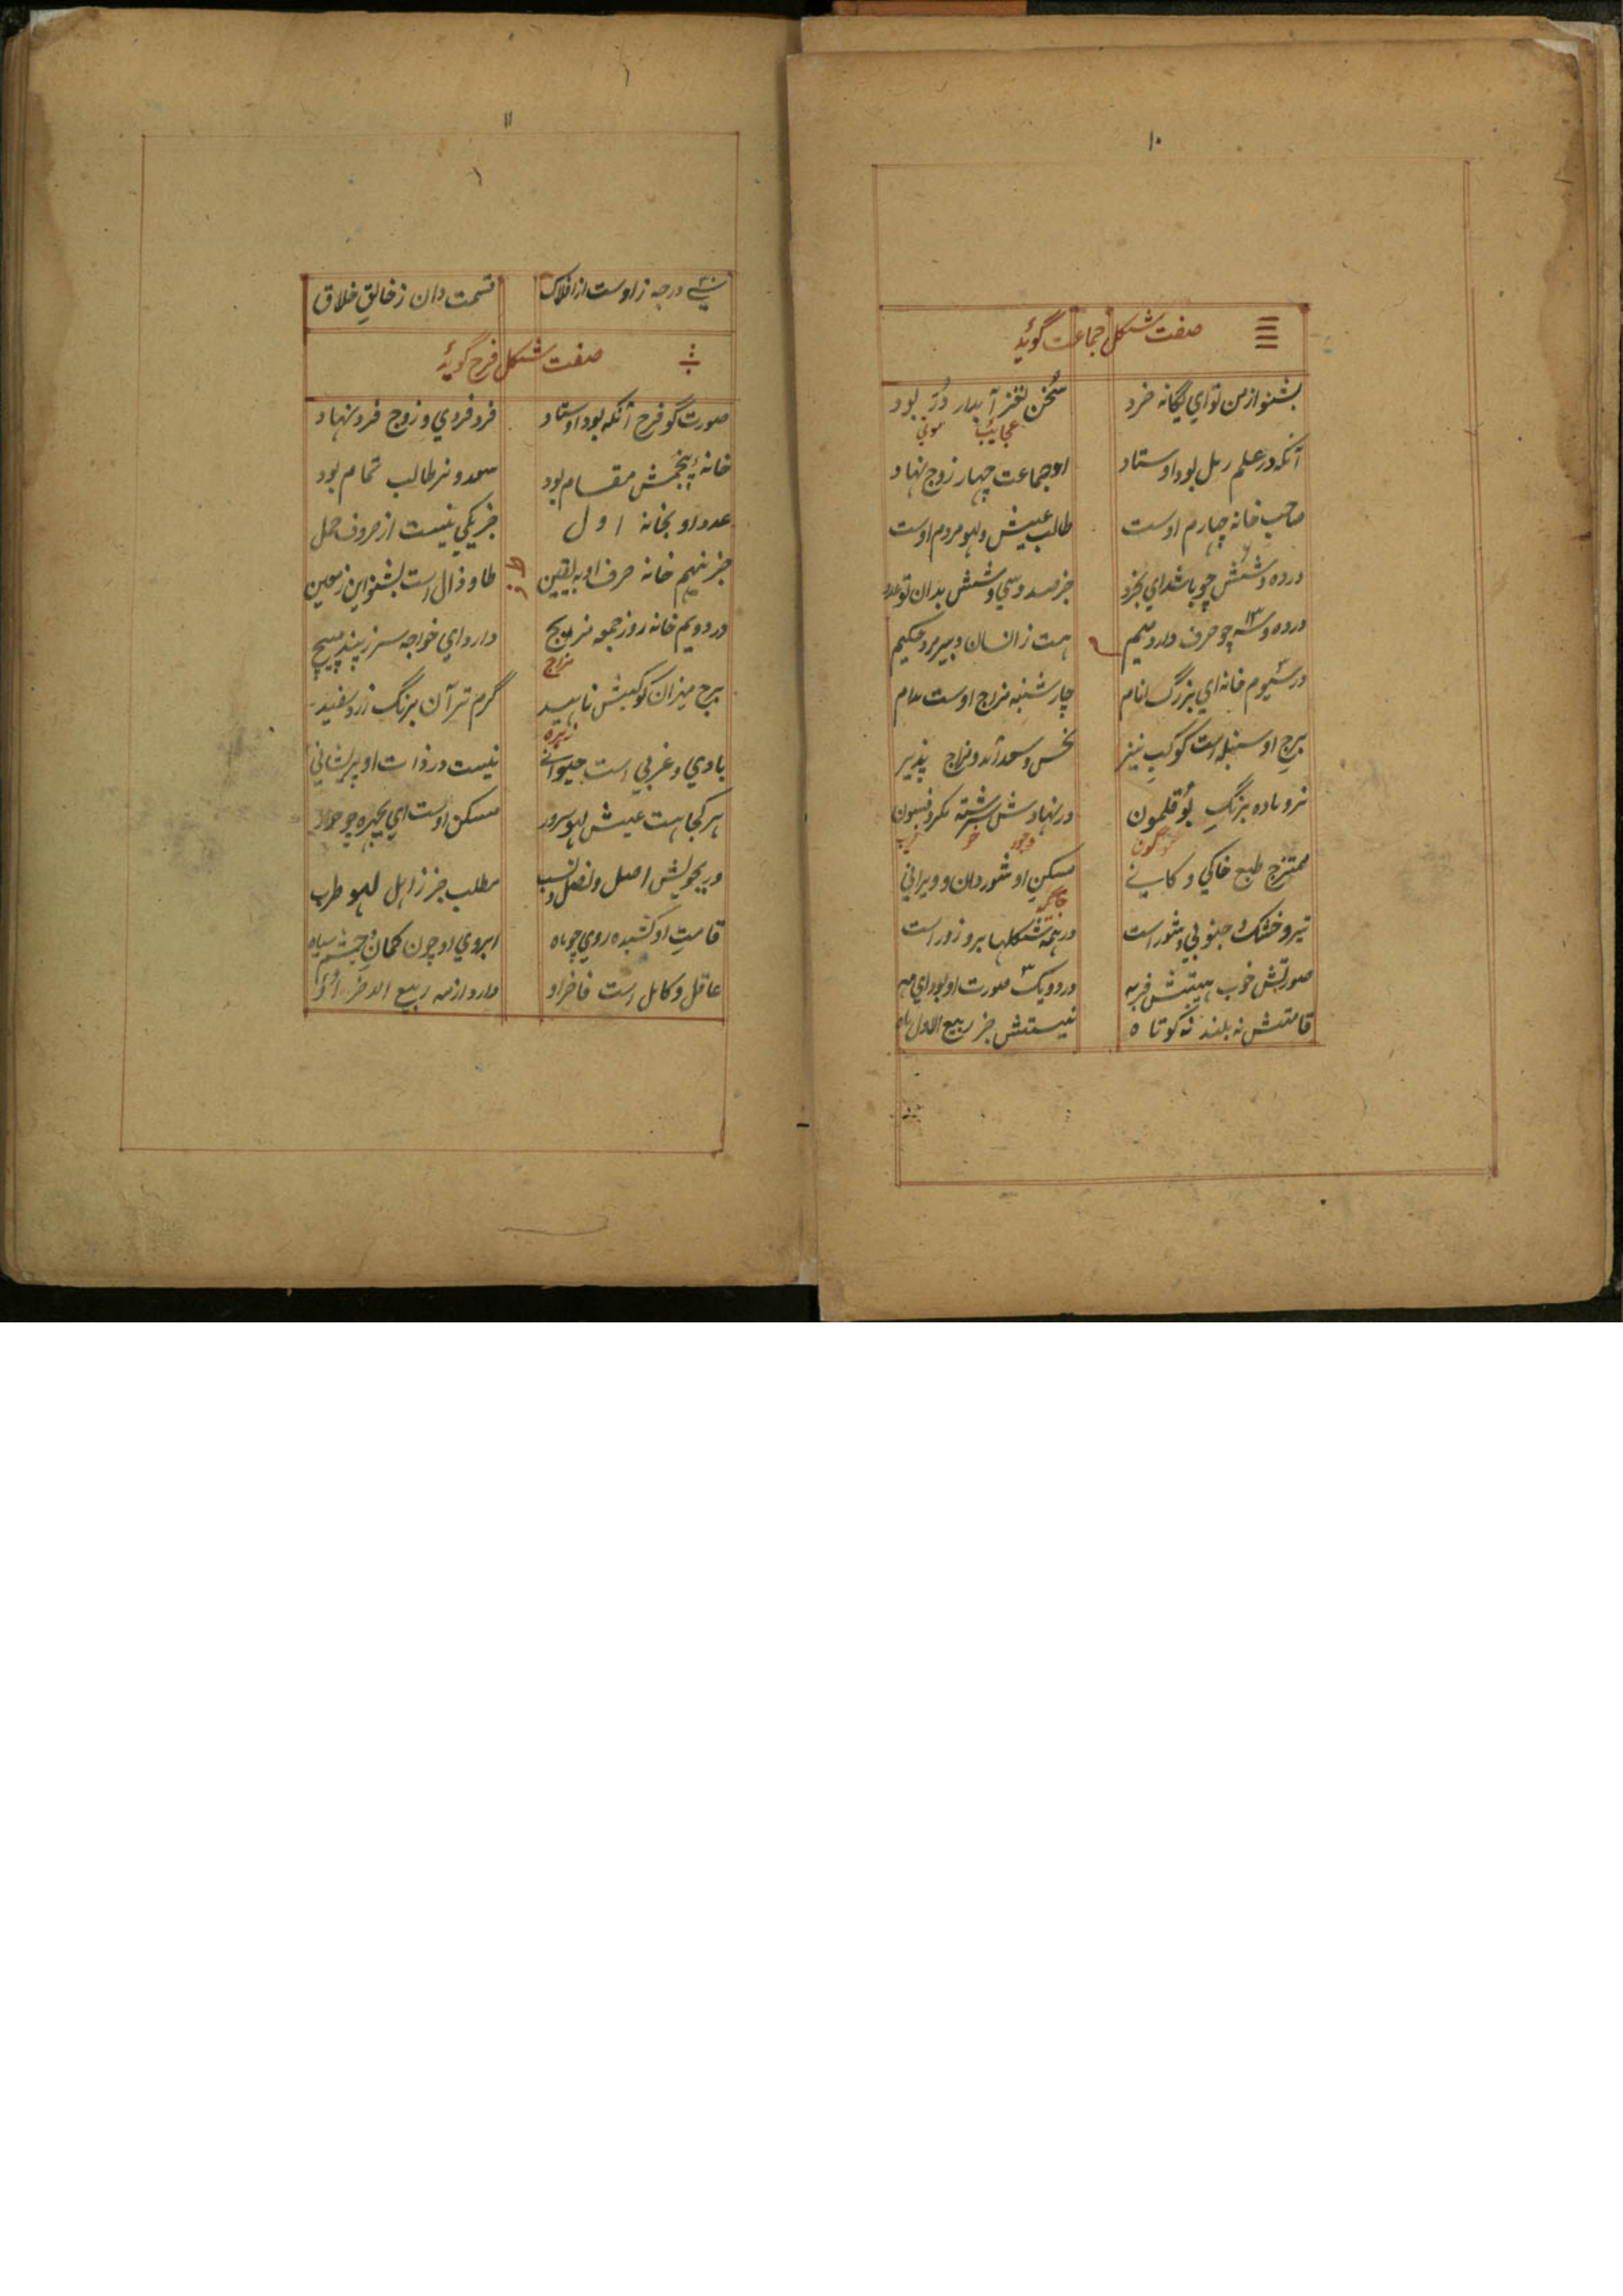 ۱۰
صفت شکل جماعت گوید
بشنو از من تو ای یگانه خرد سخن نغز آبدار دُرّ بود
عجایب موتی
آنکه در علم رمل بود اوستاد او جماعت چهار زوج نهاد
صاحب خانه چهارم اوست طالب عیش و لهو مردم اوست
در ده و شش چو باشد ای بخرد جز صد و سی و شش بدان تو عدد
در ده و سه چو حرف دارد میم هست ز انسان دبیر مرد حکیم
۱۳
در سیوم خانه ای بزرگ انام چار شنبه مزاج اوست مدام
برج او سنبله است کوکب نیز نحس و سعد آمد و مزاج پذیر
نر و ماده برنگ بوقلمون در نهادش سرشته مکر و فسون
گون خو فریب
ممتزج طبع خاکی و کانی مسکن او شوردان و ویرانی
تیر و خشک و جنوبی و شور است در همه شکلها برو زور است
صورتش خوب هیتش فربه در دو یک صورت او بود ای مه
قامتش نه بلند نه کوتاه نیستش جز ربیع الاول ماه
۱۱
سی درجه ز اوست از افلاک قسمت دان ز خالق خلاق
۳۰
صفت شکل فرح گوید
صورت گو فرح آنکه بود اوستاد فرد فردی و زوج فرد نهاد
خانهٔ پنجمش مقام بود سعد و نر طالب تمام بود
عدد او بخانه اول جز یکی نیست از حروف جمل
جز نهم خانه حرف او به یقین طا و ذال است بشنو این ز معین
ط ذ
در دویم خانه روز جمعه مزیج دارد ای خواجه سر ز پند مپیچ
مزاج
برج میزان کوکبش ناهید گرم تر آن برنگ زرد سفید
زهره
بادی و غربی است حیوانی نیست در ذات او پریشانی
هر کجا هست عیش لهو سرور مسکن اوست ای بچهره چو حور
در بجویش اصل و فصل و نسب مطلب جز ز اهل لهو طرب
قامت او کشیده روی چو ماه ابروی او چون کمان و چشم سیاه
عاقل و کامل است فاخر او دارد از مه ربیع الاخر او